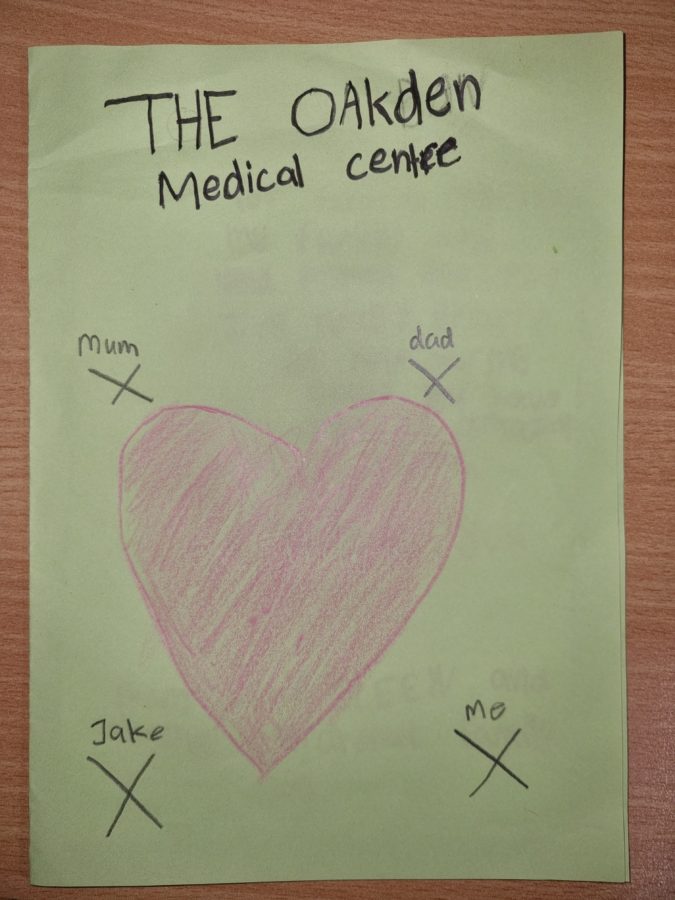 THE OAkden
Medical centre
Mum
dad
Jake
Me